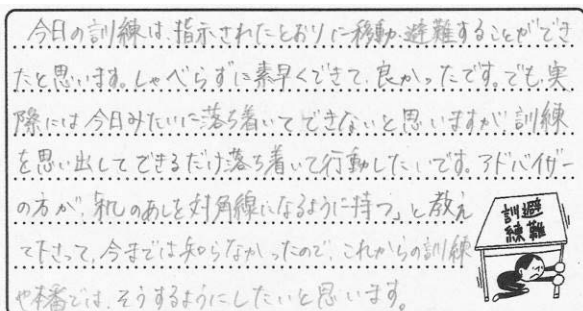 今日の訓練は、指示されたとおりに移動・避難することができ
たと思います。しゃべらずに素早くできて、良かったです。でも、実
際には今日みたいに落ち着いてできないと思いますが、訓練
を思い出してできるだけ落ち着いて行動したいです。アドバイザー
の方が、「机のあしを対角線になるように持つ」と教え
て下さって、今までは知らなかったので、これからの訓練
や本番では、そうするようにしたいと思います。
避難
訓練